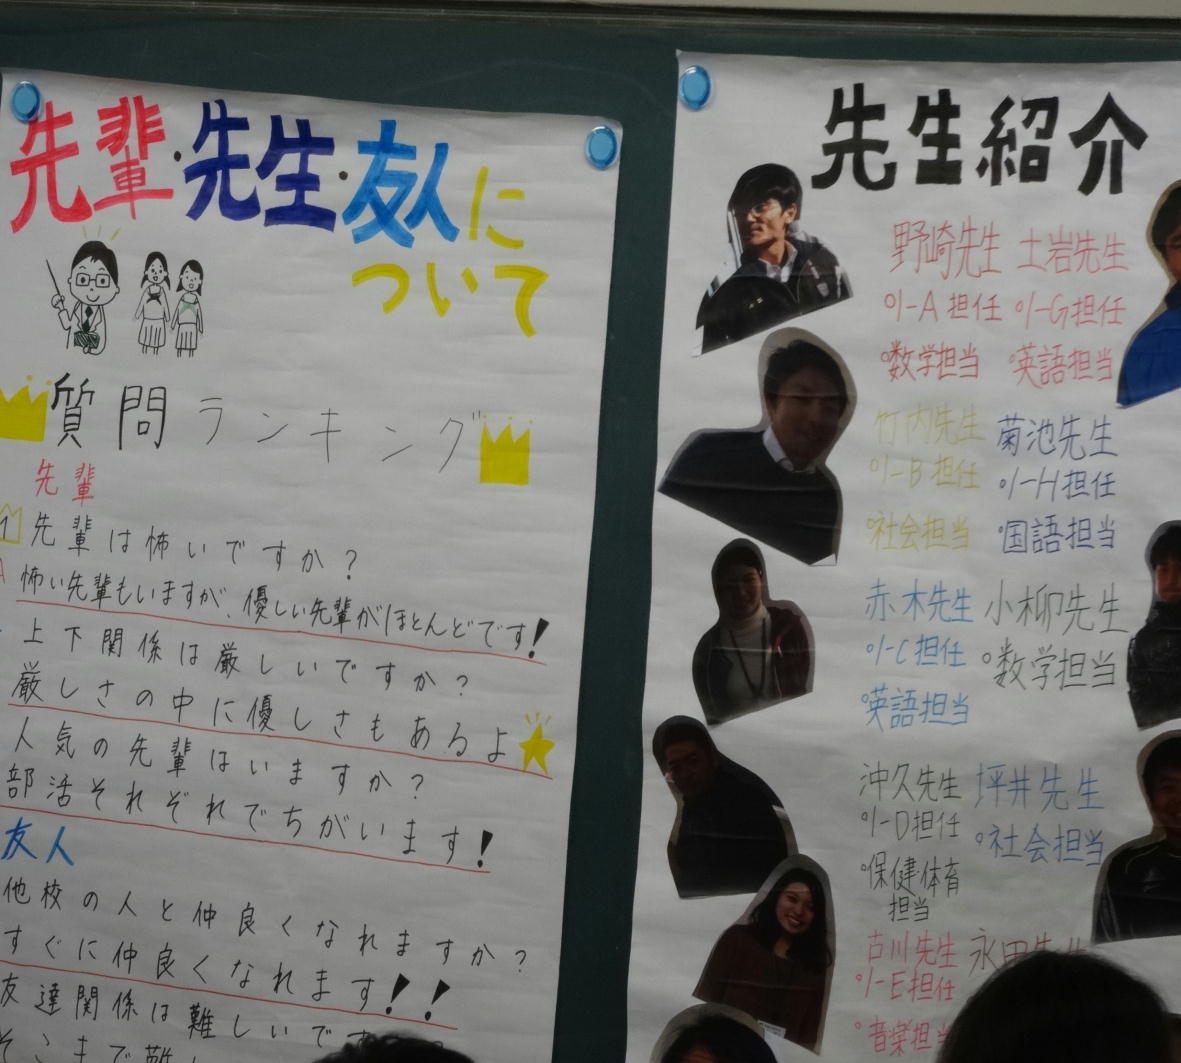 先輩・先生・友人に
ついて
質問ランキング
先輩
1 先輩は怖いですか?
A 怖い先輩もいますが、優しい先輩がほとんどです!
上下関係は厳しいですか?
厳しさの中に優しさもあるよ
人気の先輩はいますか?
部活それぞれでちがいます!
友人
他校の人と仲良くなれますか?
すぐに仲良くなれます!!
友達関係は難しいです
そこまで難し
先生紹介
野崎先生
1-A担任
数学担当
土岩先生
1-G担任
英語担当
竹内先生
1-B担任
社会担当
菊池先生
1-H担任
国語担当
赤木先生
1-C担任
英語担当
小柳先生
数学担当
沖久先生
1-D担任
保健・体育
担当
坪井先生
社会担当
古川先生
1-E担任
音楽担当
永田先生